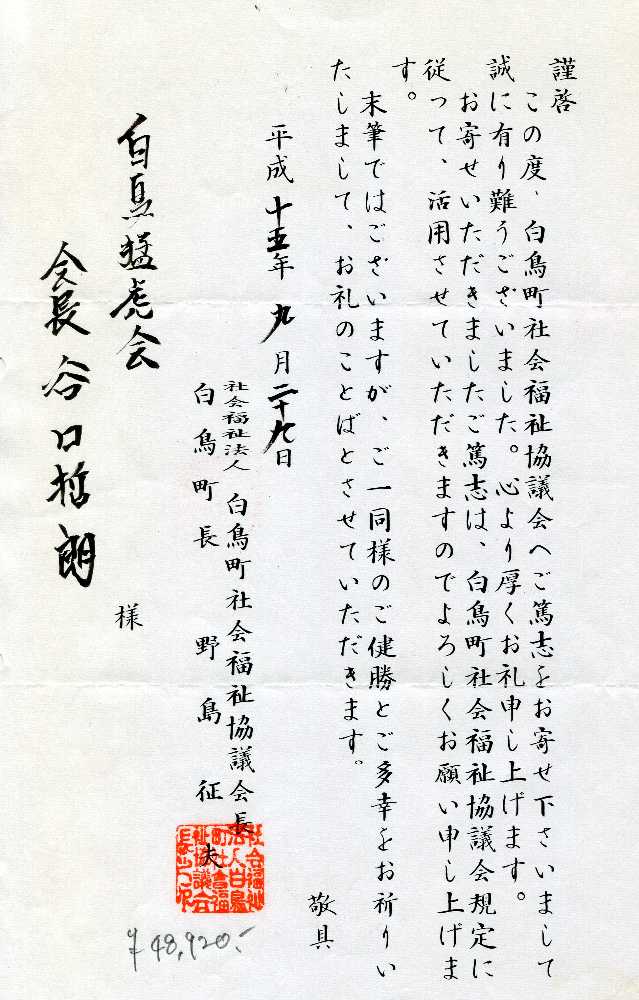 謹啓
この度、白鳥町社会福祉協議会へご篤志をお寄せ下さいまして
誠に有り難うございました。心より厚くお礼申し上げます。
お寄せいただきましたご篤志は、白鳥町社会福祉協議会規定に
従って、活用させていただきますのでよろしくお願い申し上げま
す。
末筆ではございますが、ご一同様のご健勝とご多幸をお祈りい
たしまして、お礼のことばとさせていただきます。
敬具
平成十五年九月二十九日
社会福祉法人 白鳥町社会福祉協議会長
白鳥町長 野島征夫
白鳥猛虎会
会長 谷口哲朗 様
¥48,920.-